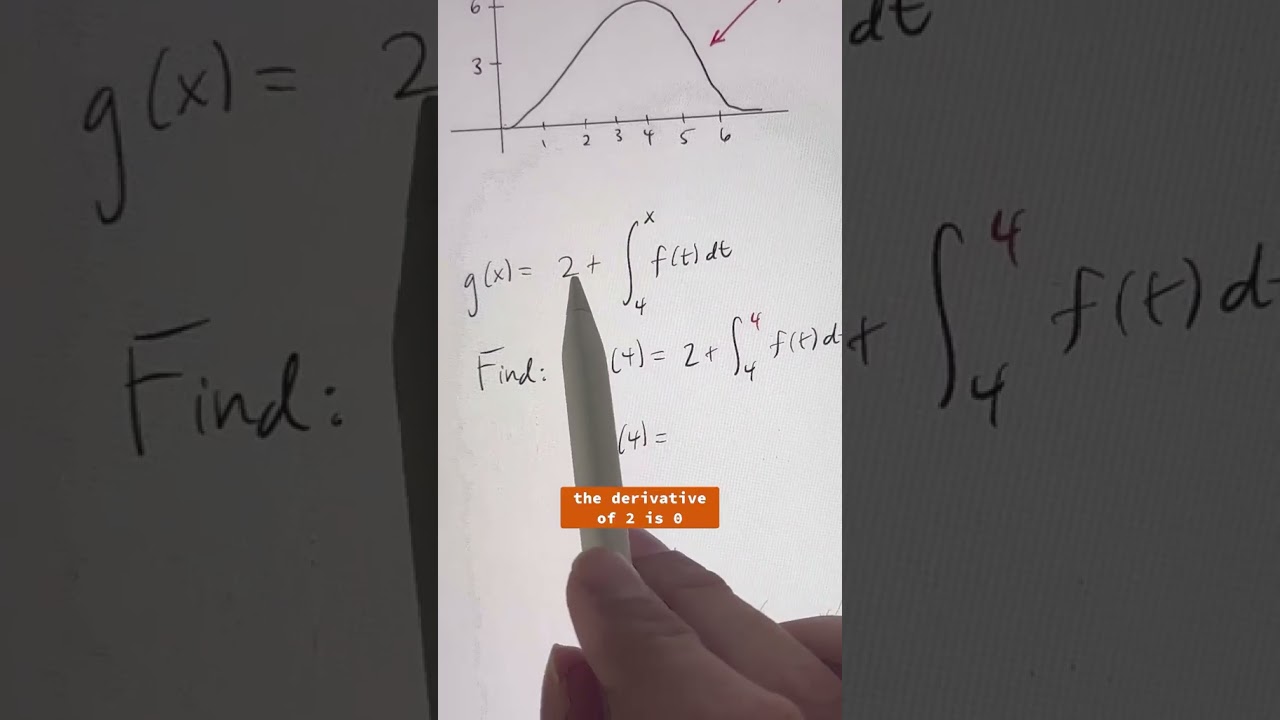 6
3
1 2 3 4 5 6
g(x) = 2 + ∫₄ˣ f(t) dt
Find: (4) = 2 + ∫₄⁴ f(t) d
(4) =
the derivative
of 2 is 0
g(x) = 2
dt
Find:
+ ∫₄⁴ f(t) d